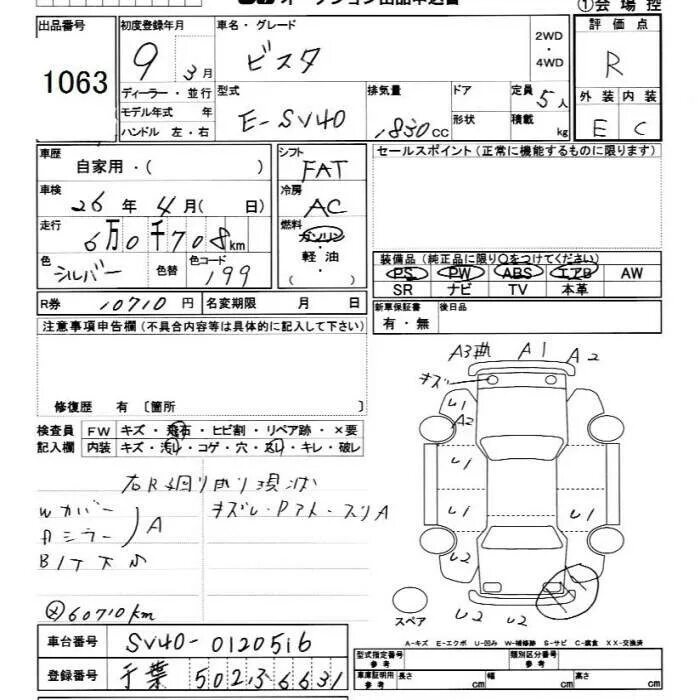 オークション出品申込書
①会場控
出品番号
1063
初度登録年月
9 3月
ディーラー・並行
モデル年式 年
ハンドル 左・右
車名・グレード
ビスタ
2WD
・
4WD
型式
E-SV40
排気量
1830CC
ドア
形状
定員 5人
積載 kg
評価点
R
外装 内装
E C
車歴
自家用・( )
車検
26年 4月( 日)
走行
6万0千708km
色
シルバー
色替
色コード
199
シフト
FAT
冷房
AC
燃料
ガソリン
・
軽油
・
( )
セールスポイント(正常に機能するものに限ります)
装備品(純正品に限り○をつけてください)
PS PW ABS エアB AW
SR ナビ TV 本革
R券 10710円 名変期限 月 日
新車保証書 後日品
有・無
注意事項申告欄(不具合内容等は具体的に記入して下さい)
修復歴 有〔箇所 〕
検査員
記入欄
FW キズ・飛石・ヒビ割・リペア跡・×要
内装 キズ・汚れ・コゲ・穴・スレ・キレ・破レ
Wカバー
Pミラー
A
㋱60710km
A3 A1 A2
キズ
U1
A2
U1 U1
U1 U1
U2
U2 U2
スペア
A-キズ E-エクボ U-凹み W-補修跡 S-サビ C-腐食 XX-交換済
車台番号 SV40-0120516
登録番号 千葉 502 3 6631
型式指定番号
参考
類別区分番号
参考
車庫証明用
参考
長さ cm 幅 cm 高さ cm